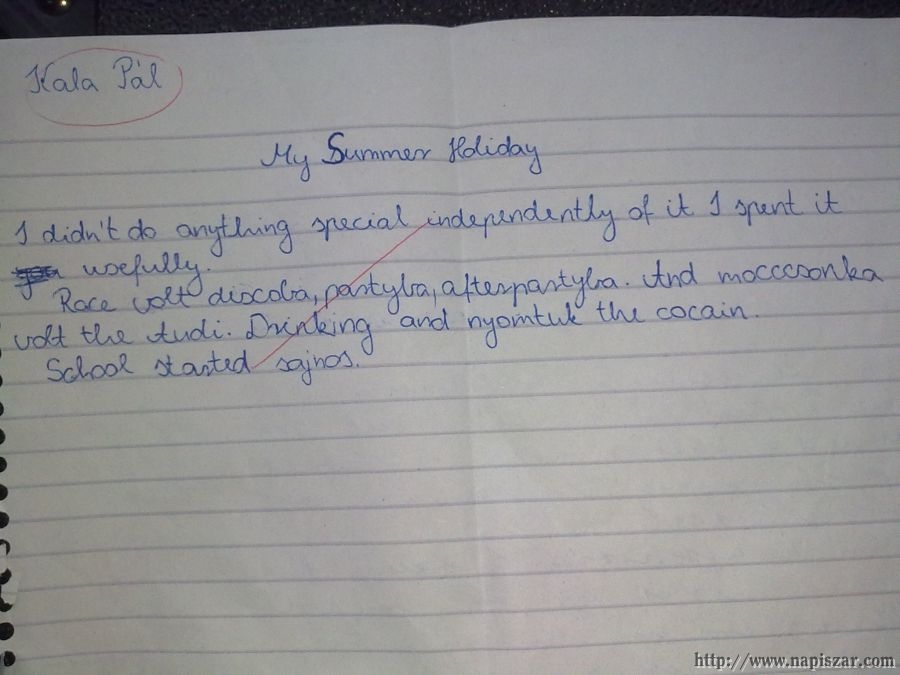 Kala Pál
My Summer Holiday
I didn't do anything special independently of it I spent it
usefully.
Race volt discoba, partyba, afterpartyba. And mocccsonka
volt the Audi. Drinking and nyomtuk the cocain.
School started sajnos.
http://www.napiszar.com